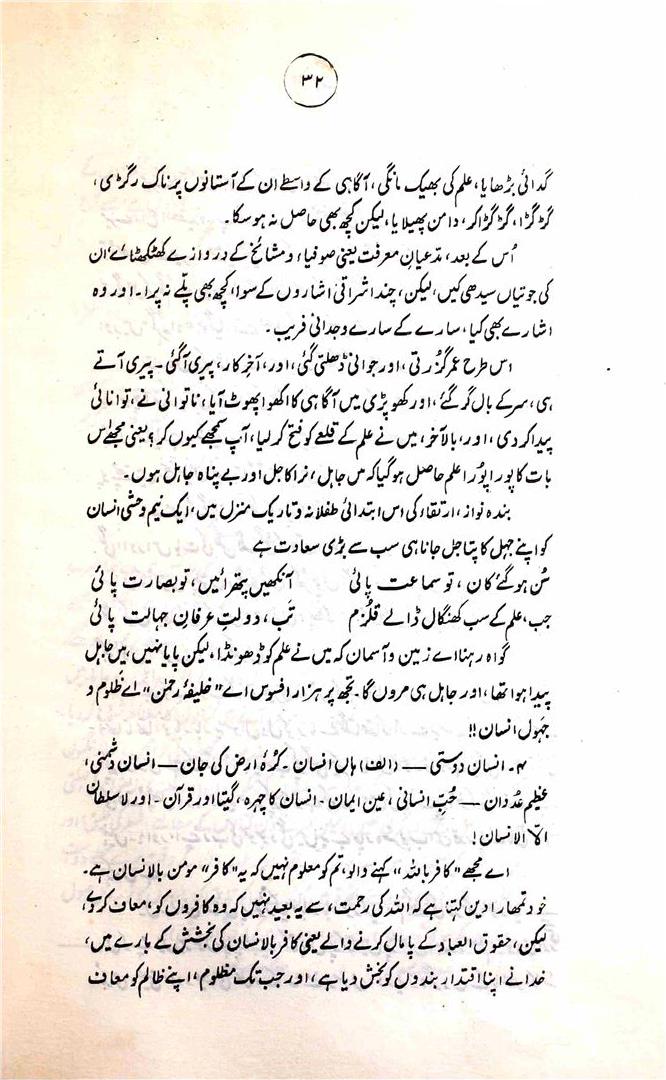 ۳۲
گدائی بڑھایا، علم کی بھیک مانگی، آگاہی کے واسطے ان کے آستانوں پر ناک رگڑی،
گڑگڑا، گڑگڑا کر، دامن پھیلایا، لیکن کچھ بھی حاصل نہ ہو سکا۔
اُس کے بعد، مدعیانِ معرفت یعنی صوفیاء و مشائخ کے دروازے کھٹکھٹائے، ان
کی جوتیاں سیدھی کیں، لیکن، چند اشراقی اشاروں کے سوا، کچھ بھی پلّے نہ پڑا۔ اور وہ
اشارے بھی کیا، سارے کے سارے وجدانی فریب۔
اس طرح عمر گزرتی، اور جوانی ڈھلتی گئی، اور، آخرِ کار، پیری آ گئی۔ پیری آتے
ہی، سر کے بال گر گئے، اور کھوپڑی میں آگاہی کا اکھوا پھوٹ آیا، ناتوانی نے، توانائی
پیدا کر دی، اور، بالآخر، میں نے علم کے قلعے کو فتح کر لیا، آپ سمجھے کیوں کر؟ یعنی مجھے اس
بات کا پورا پورا علم حاصل ہو گیا کہ میں جاہل، نرا کا جل اور بے پناہ جاہل ہوں۔
بندہ نواز، ارتقاء کی اس ابتدائی طفلانہ و تاریک منزل میں، ایک نیم وحشی انسان
کو اپنے جہل کا پتا چل جانا ہی سب سے بڑی سعادت ہے
سُن ہو گئے کان، تو سماعت پائی آنکھیں پتھرائیں، تو بصارت پائی
جب، علم کے سب کھنگال ڈالے قلزم تب، دولتِ عرفانِ جہالت پائی
گواہ رہنا اے زمین و آسمان کہ میں نے علم کو ڈھونڈا، لیکن پایا نہیں، میں جاہل
پیدا ہوا تھا، اور جاہل ہی مروں گا۔ تجھ پر ہزار افسوس اے "خلیفۂ رحمٰن" اے ظلوم و
جہول انسان!!
۴۔ انسان دوستی — (الف) ہاں انسان۔ کرۂ ارض کی جان — انسان دشمنی،
عظیم عُدوان — حُبِّ انسانی، عین ایمان۔ انسان کا چہرہ، گیتا اور قرآن۔ اور لا سلطان
الّا الانسان!
اے مجھے "کافر باللہ" کہنے والو، تم کو معلوم نہیں کہ یہ "کافر" مومن بالانسان ہے۔
خود تمھارا دین کہتا ہے کہ اللہ کی رحمت، سے یہ بعید نہیں کہ وہ کافروں کو، معاف کر دے،
لیکن، حقوق العباد کے پامال کرنے والے یعنی کافر بالانسان کی بخشش کے بارے میں،
خدا نے اپنا اقتدار بندوں کو بخش دیا ہے، اور جب تک مظلوم، اپنے ظالم کو معاف